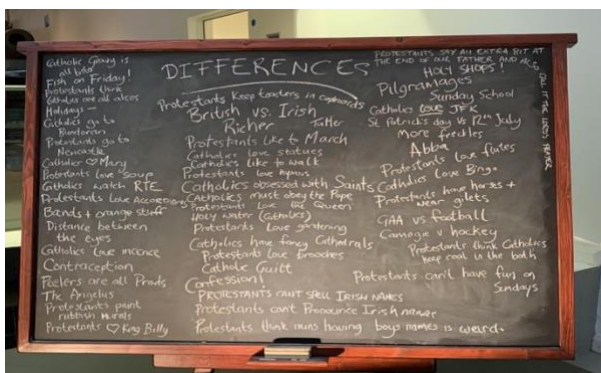 Catholic Gravy is
all bisto
Fish on Friday!
Protestants think
Catholics are all alcos
Holidays –
Catholics go to
Bundoran
Protestants go to
Newcastle
Catholics ♡ Mary
Protestants love Soup
Catholics watch RTE
Protestants Love Accordions
Bands + orange stuff
Distance between
the eyes
Catholics love incence
Contraception
Peelers are all Prods
The Angelus
Protestants paint
rubbish murals
Protestants ♡ King Billy
DIFFERENCES
Protestants keep toasters in cupboards
British vs. Irish
Richer
Taller
Protestants like to March
Catholics love statues
Catholics like to walk
Protestants love hymns
Catholics obsessed with Saints
Catholics must obey the Pope
Protestants love the Queen
Holy water (Catholics)
Protestants love gardening
Catholics have fancy Cathedrals
Protestants love brooches
Catholic Guilt
Confession!
PROTESTANTS CAN'T SPELL IRISH NAMES
Protestants can't Pronounce Irish names
Protestants think nuns having boys names is weird.
PROTESTANTS SAY AN EXTRA BIT AT
THE END OF OUR FATHER AND ALSO
CALL IT THE LORD'S PRAYER
HOLY SHOPS!
Pilgramages
Sunday School
Catholics love JFK
St Patrick's day vs 12th July
More freckles
Abba
Protestants love flutes
Catholics love Bingo
Protestants have horses +
wear gilets
GAA vs football
Camogie v hockey
Protestants think Catholics
keep coal in the bath
Protestants can't have fun on
Sundays